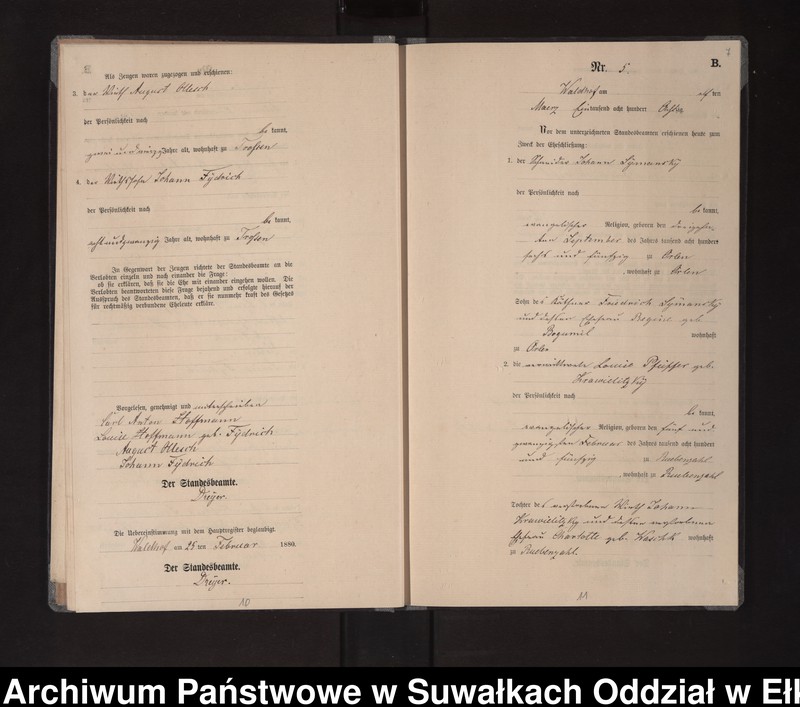 Als Zeugen waren zugezogen und erschienen:
3. der Wirth August Olesch
der Persönlichkeit nach
be kannt,
zwei und Jahre alt, wohnhaft zu Trossen
4. der Wirthssohn Johann Fydrich
der Persönlichkeit nach
be kannt,
achtundzwanzig Jahre alt, wohnhaft zu Trossen
In Gegenwart der Zeugen richtete der Standesbeamte an die
Verlobten einzeln und nach einander die Frage:
ob sie erklären, daß sie die Ehe mit einander eingehen wollen. Die
Verlobten beantworteten diese Frage bejahend und erfolgte hierauf der
Ausspruch des Standesbeamten, daß er sie nunmehr kraft des Gesetzes
für rechtmäßig verbundene Eheleute erkläre.
Vorgelesen, genehmigt und unterschrieben
Carl Anton Hoffmann
Louise Hoffmann geb. Fydrich
August Olesch
Johann Fydrich
Der Standesbeamte.
Dreyer.
Die Uebereinstimmung mit dem Hauptregister beglaubigt.
Waldhof am 25 ten Februar 1880.
Der Standesbeamte.
Dreyer.
10
Nr. 5.
B.
Waldhof am elf ten
Maerz Eintausend acht hundert Achtzig
Vor dem unterzeichneten Standesbeamten erschienen heute zum
Zweck der Eheschließung:
1. der Schneider Johann Symanski
der Persönlichkeit nach
be kannt,
evangelischer Religion, geboren den dreizehn-
ten September des Jahres tausend acht hundert
sechs und fünfzig zu Orlen
, wohnhaft zu Orlen
Sohn des Käthner Friedrich Symansky
und dessen Ehefrau geb.
Bogumil wohnhaft
zu Orlen
2. die verwittwete Louise Pfeiffer geb.
Krawielitzky
der Persönlichkeit nach
be kannt,
evangelischer Religion, geboren den fünf und
zwanzigsten Februar des Jahres tausend acht hundert
und fünfzig zu Ruebenzahl
, wohnhaft zu Ruebenzahl
Tochter des verstorbenen Wirth Johann
Krawielitzky und dessen verstorbenen
Ehefrau Charlotte geb. Kaschk wohnhaft
zu Ruebenzahl.
11
Archiwum Państwowe w Suwałkach Oddział w Ełk